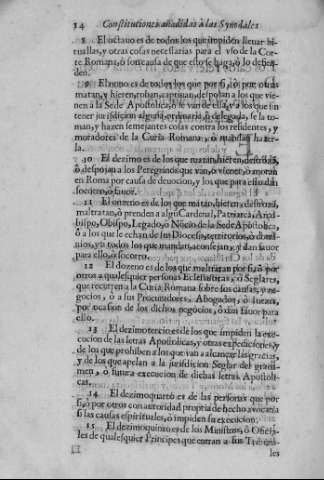 34 Constituciones añadidas à las Synodales
8 El octauo es de todos los que impiden lleuar bi-
tuallas, y otras cosas necessarias para el vso de la Cor-
te Romana, ò son causa de que esto se haga, ò lo defien-
den.
9 El nono es de todos los que por sì, ò por otros
matan, y hieren, roban, captiuan, despojan a los que vie-
nen à la Sede Apostolica, ò se van de ella, y a los que sin
tener jurisdicion alguna, ordinaria, ò delegada, se la to-
man, y hazen semejantes cosas contra los residentes, y
moradores de la Curia Romana, ò mandan hazer-
la.
10 El dezimo es de los que matan, hieren, destroçã,
ò despojan a los Peregrinos que van, ò vienẽ, ò moran
en Roma por causa de deuocion, y los que para ello dan
socorro, ò fauor.
11 El onzeno es de los que matan, hieren, destroçã,
maltratan, ò prenden a algũ Cardenal, Patriarca, Arço-
bispo, Obispo, Legado, ò Nũcio de la Sede Apostolica,
ò a los que le echan de sus Diocesis, territorios, ò domi-
nios, y a todos los que mandan, aconsejan, y dan fauor
para ello, ò socorro.
12 El dozeno es de los que maltratan por sì, ò por
otros a qualesquier personas Eclesiasticas, ò Seglares,
que recurren a la Curia Romana sobre sus causas, y ne-
gocios, ò a sus Procuradores, Abogados, ò Iuezes,
por ocasion de los dichos negocios, ò dan fauor para
ello.
13 El dezimotercio es de los que impiden la exe-
cucion de las letras Apostolicas, y otras expediciones, y
de los que prohiben a los que van a alcançar las gracias,
y de los que apelan a la jurisdicion Seglar del graua-
men, ò futura execucion de dichas letras Apostoli-
cas.
14 El dezimoquarto es de las personas que por
sì, ò por otros con autoridad propria de hecho avocan a
sì las causas espirituales, ò impiden su execucion.
15 El dezimoquinto es de los Ministros, ò Oficia-
les de qualesquier Principes que entran a sus Tribuna-
les